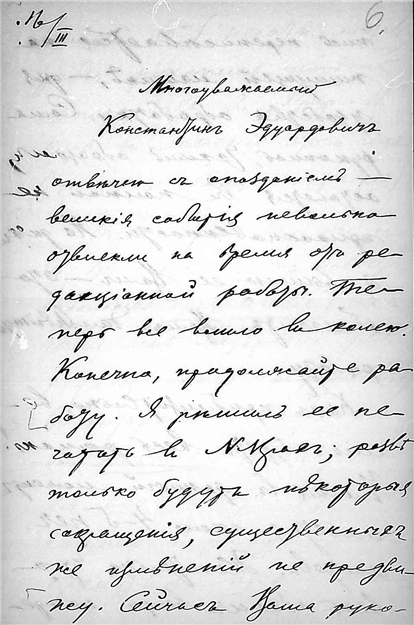 16/III
6.
Многоуважаемый
Константинъ Эдуардовичъ
отвѣчаю съ опозданіемъ —
великія событія невольно
отвлекли на время отъ ре-
дакціонной работы. Те-
перь все вошло въ колею.
Конечно, продолжайте ра-
боту. Я рѣшилъ ее пе-
чатать въ
только будутъ нѣкоторыя
сокращенія, существенныхъ
же измѣненій не предви-
жу. Сейчасъ Ваша руко-